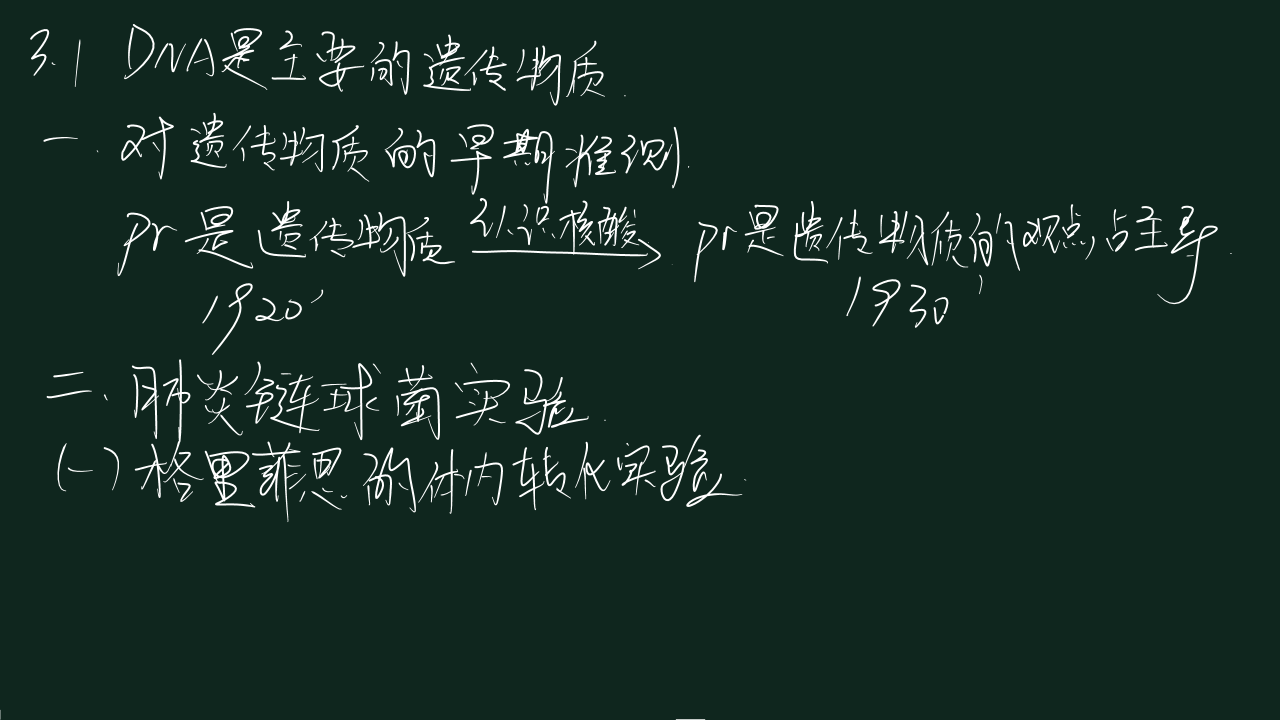 3.1 DNA是主要的遗传物质.
一. 对遗传物质的早期推测.
pr是遗传物质 认识核酸→ pr是遗传物质的观点占主导.
1920' 1930'
二. 肺炎链球菌实验.
(一) 格里菲思的体内转化实验.